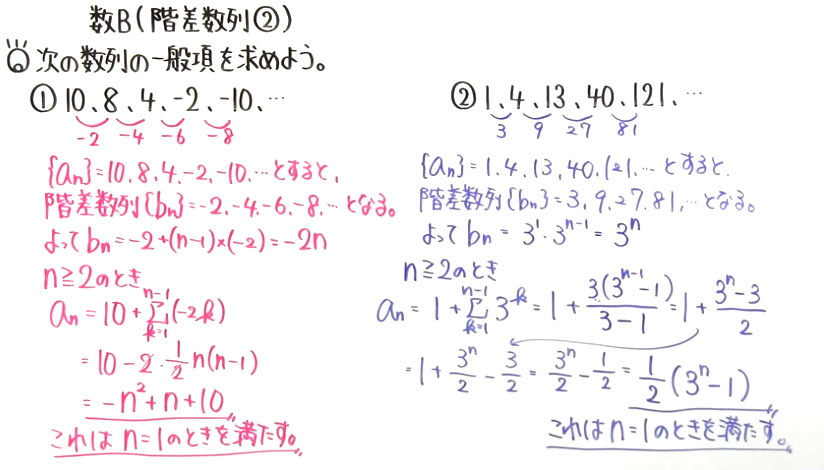 数B(階差数列②)
次の数列の一般項を求めよう。
① 10、8、4、-2、-10、…
-2 -4 -6 -8
{an}=10、8、4、-2、-10、…とすると、
階差数列{bn}=-2、-4、-6、-8、…となる。
よって bn=-2+(n-1)×(-2)=-2n
n≧2のとき
an=10+Σ[k=1, n-1](-2k)
=10-2・1/2 n(n-1)
=-n²+n+10〃
これは n=1のときを満たす。
② 1、4、13、40、121、…
3 9 27 81
{an}=1、4、13、40、121、…とすると、
階差数列{bn}=3、9、27、81、…となる。
よって bn=3¹・3ⁿ⁻¹=3ⁿ
n≧2のとき
an=1+Σ[k=1, n-1]3ᵏ=1+3(3ⁿ⁻¹-1)/(3-1)=1+(3ⁿ-3)/2
=1+3ⁿ/2-3/2=3ⁿ/2-1/2=1/2(3ⁿ-1)〃
これは n=1のときを満たす。